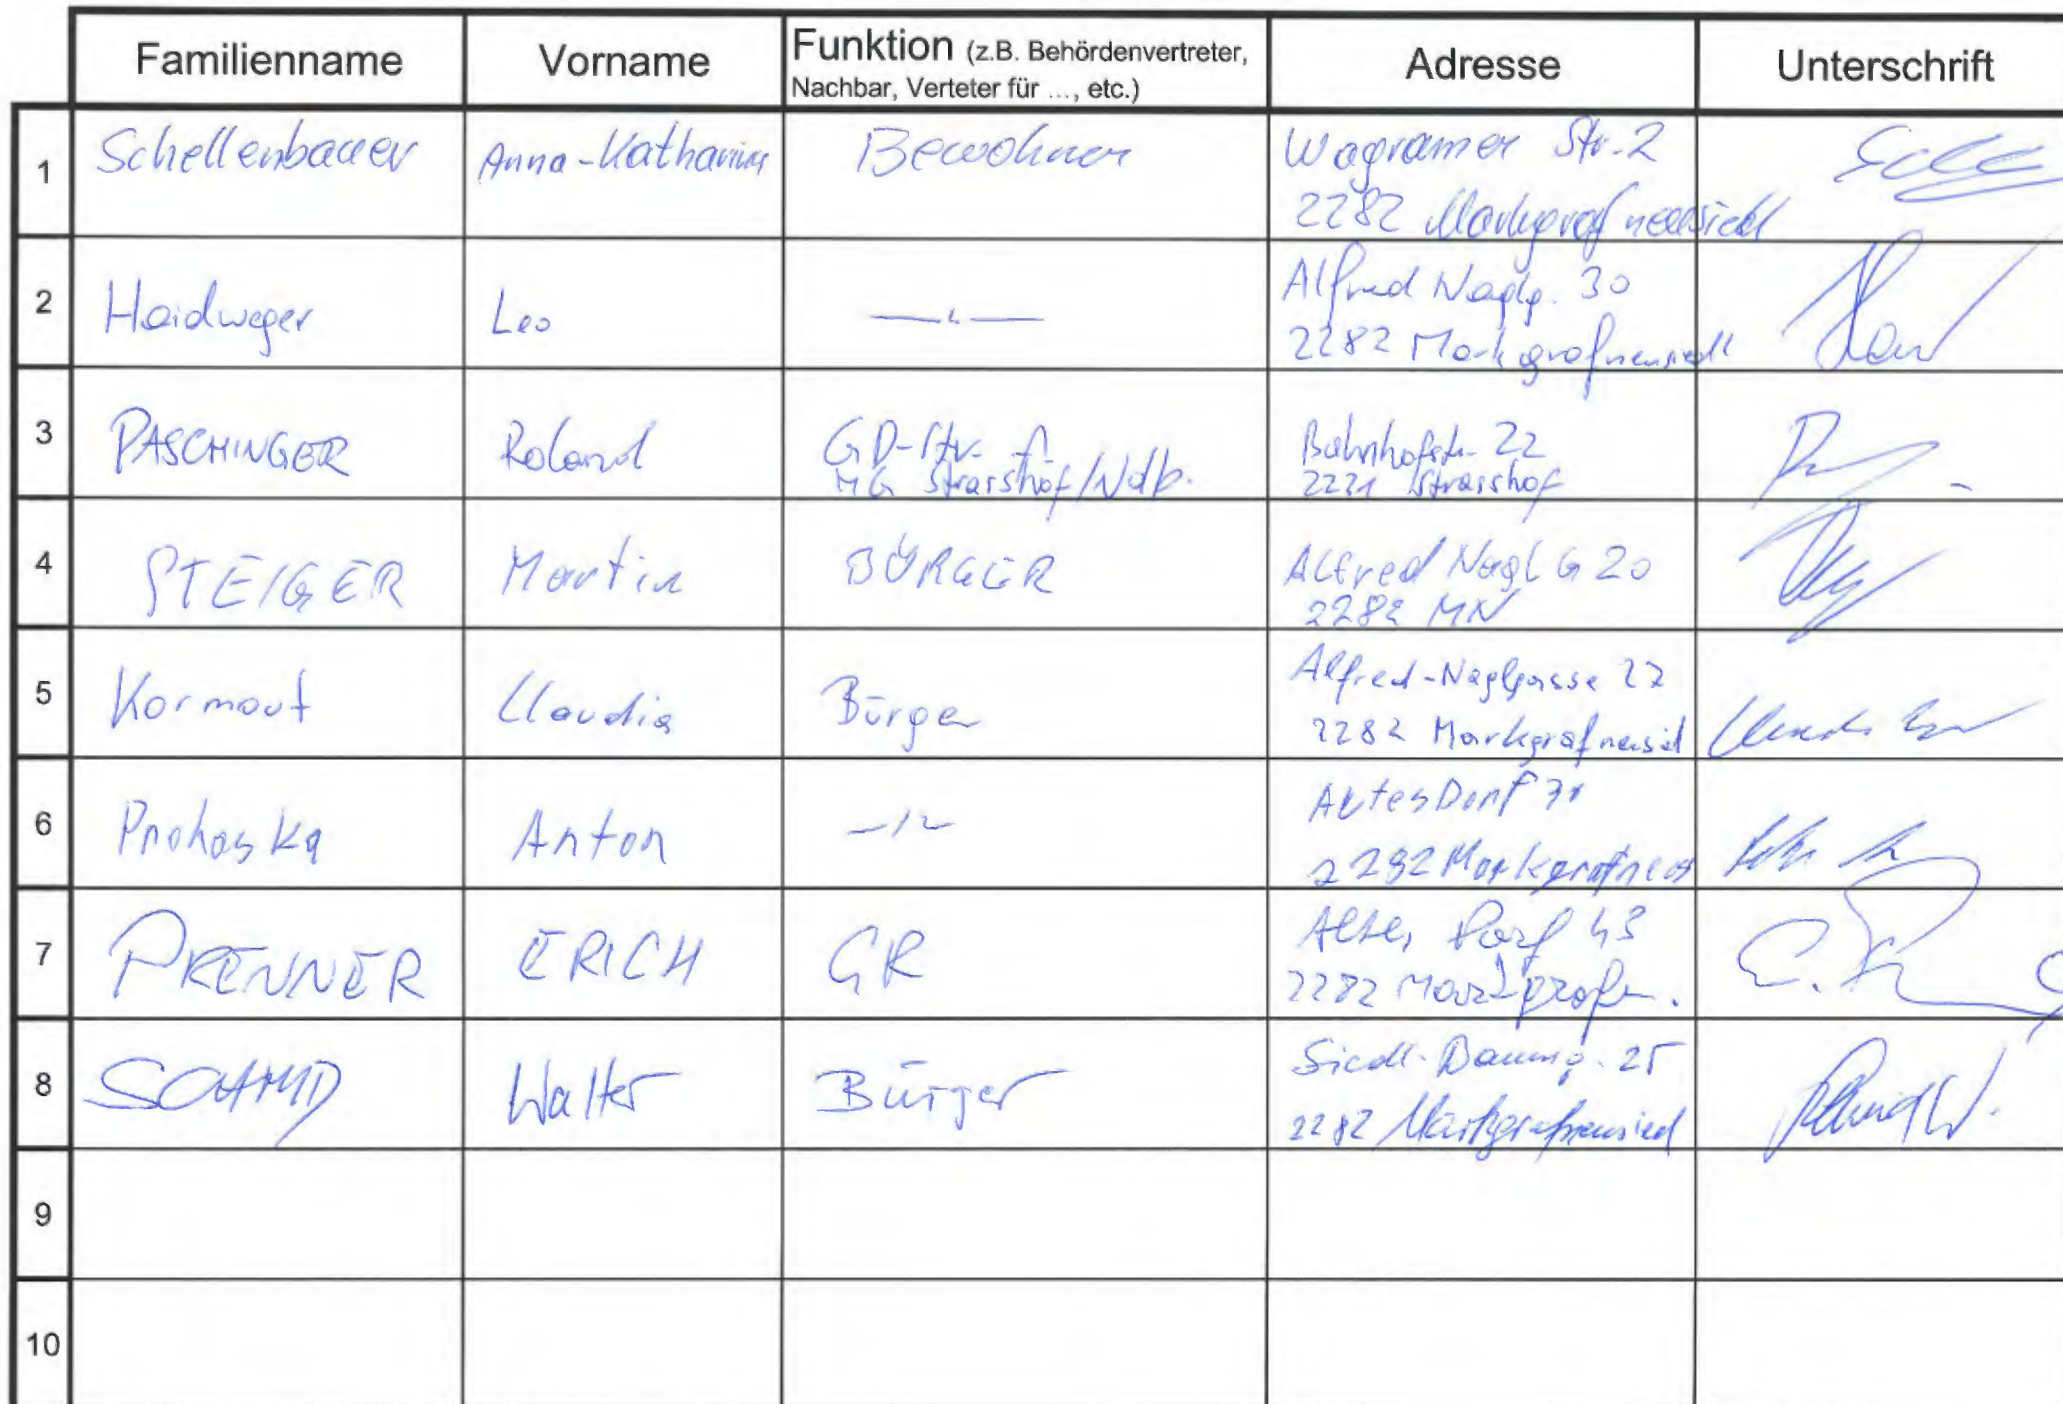 Familienname Vorname Funktion (z.B. Behördenvertreter, Adresse Unterschrift
Nachbar, Verteter für ..., etc.)
1 Schellenbauer Anna-Katharina Bewohner Wagramer Str. 2
2282 Markgrafneusiedl
2 Haidweger Leo Alfred Naglg. 30
2282 Markgrafneusiedl
3 PASCHINGER Roland Bahnhofstr. 22
MG Strasshof/Ndb. 2231 Strasshof
4 STEIGER Martin BÜRGER Alfred Nagl G 20
2282 MN
5 Kormout Claudia Bürger Alfred-Naglgasse 27
2282 Markgrafneusied
6 Prohaska Anton Dorf
2282
7 PRENNER ERICH GR Altes Dorf 43
2282 Markgrafn.
8 SCHMID Walter Bürger 25
2282 Markgrafneusied
9
10